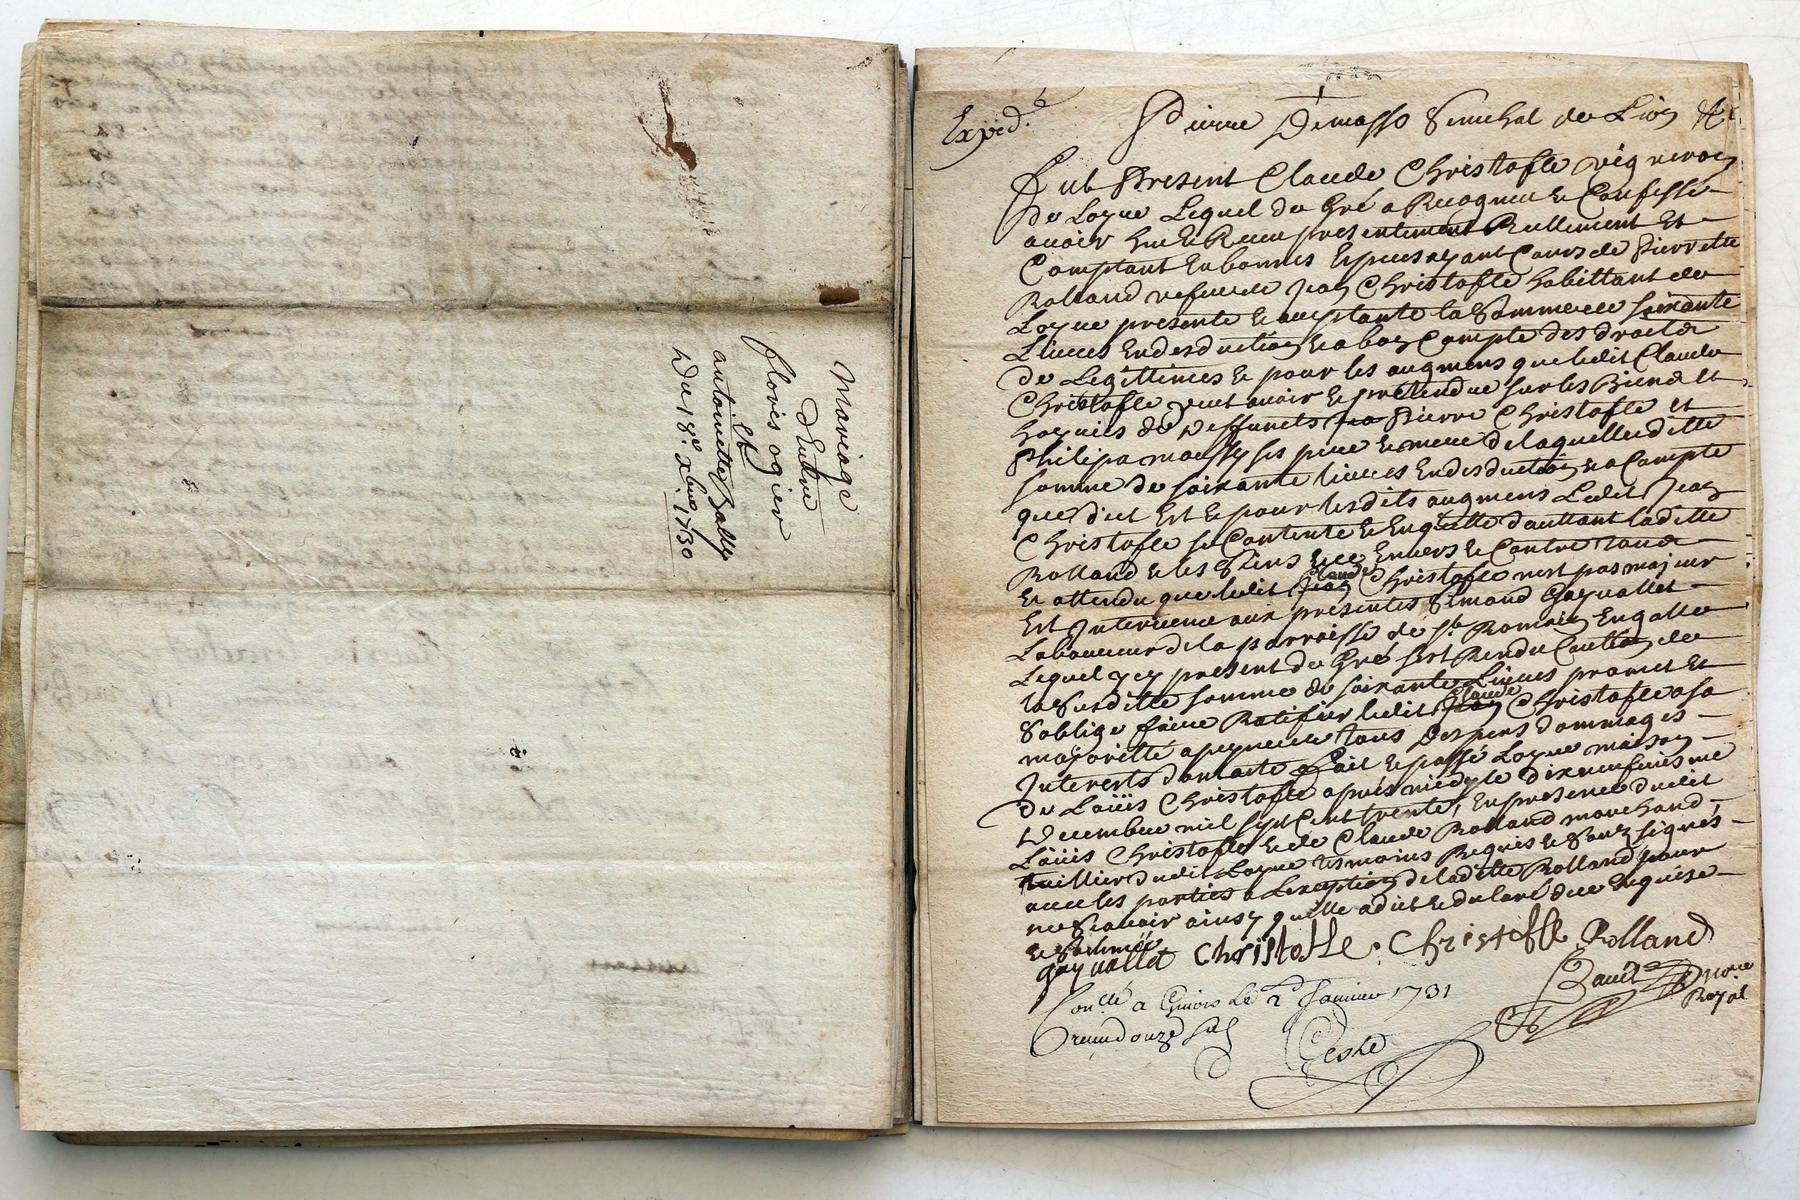 Mariage
d'Entre
floris ogier
Et
antoinette Bally
Du 18e. xbre. 1730
Expéd.
Pierre Demasso Senechal de Lion &c
Fut Present Claude Christofle vigneron
de Loyre Lequel de Gré a Recogneu & Confessé
avoir heu & Receu presentement Reellement Et
Comptant En bonnes Especes ayant Cours de Pierrette
Rolland vefve de Jean Christofle habittant de
Loyre presente & acceptante la Somme de soixante
Livres En desduction & a bon Compte des droits
de Legittimes & pour les augmens que ledit Claude
Christofle peut avoir & pretendre sur les Biens Et
hoyries de deffunts Pierre Christofle et
Philipa maussy ses pere & mere de laquelle ditte
somme de soixante livres En desduction & a Compte
que dict Est & pour lesdits augmens Ledit Jean
Christofle se Contente & En quitte d'auttant laditte
Rolland & les Siens Envers & Contre tous
Et attendu que ledit Jean Claude Christofle nest pas majeur
Est Intervenu aux presentes Simond Gayvallet
Laboureur de la parroisse de St. Romain En gallier
Lequel y cy present de Gré sest Rendu Caution de
la Susditte somme de soixante Livres promet Et
S'oblige faire Ratifier ledit Jean Claude Christofle a sa
majoritté a peyne de tous Despens dommages
Interests dont acte fait & passé Loyre maison
de Loüis Christofle après midy le dixneufviesme
Decembre mil sept Cent trente, En presence dudit
Loüis Christofle & de Claude Rolland marchand
tuillier dudit Loyre tesmoins Requis & Sousignés
avec les parties a L'exception de laditte Rolland pour
ne Scavoir ainsy quelle a dict & declaré de ce Enquise
& Sommée
gayvallet Christofle. Christoffle Rolland
nore
Royal
Conllé a Givors Le 2d Janvier 1731
Receu douze sols